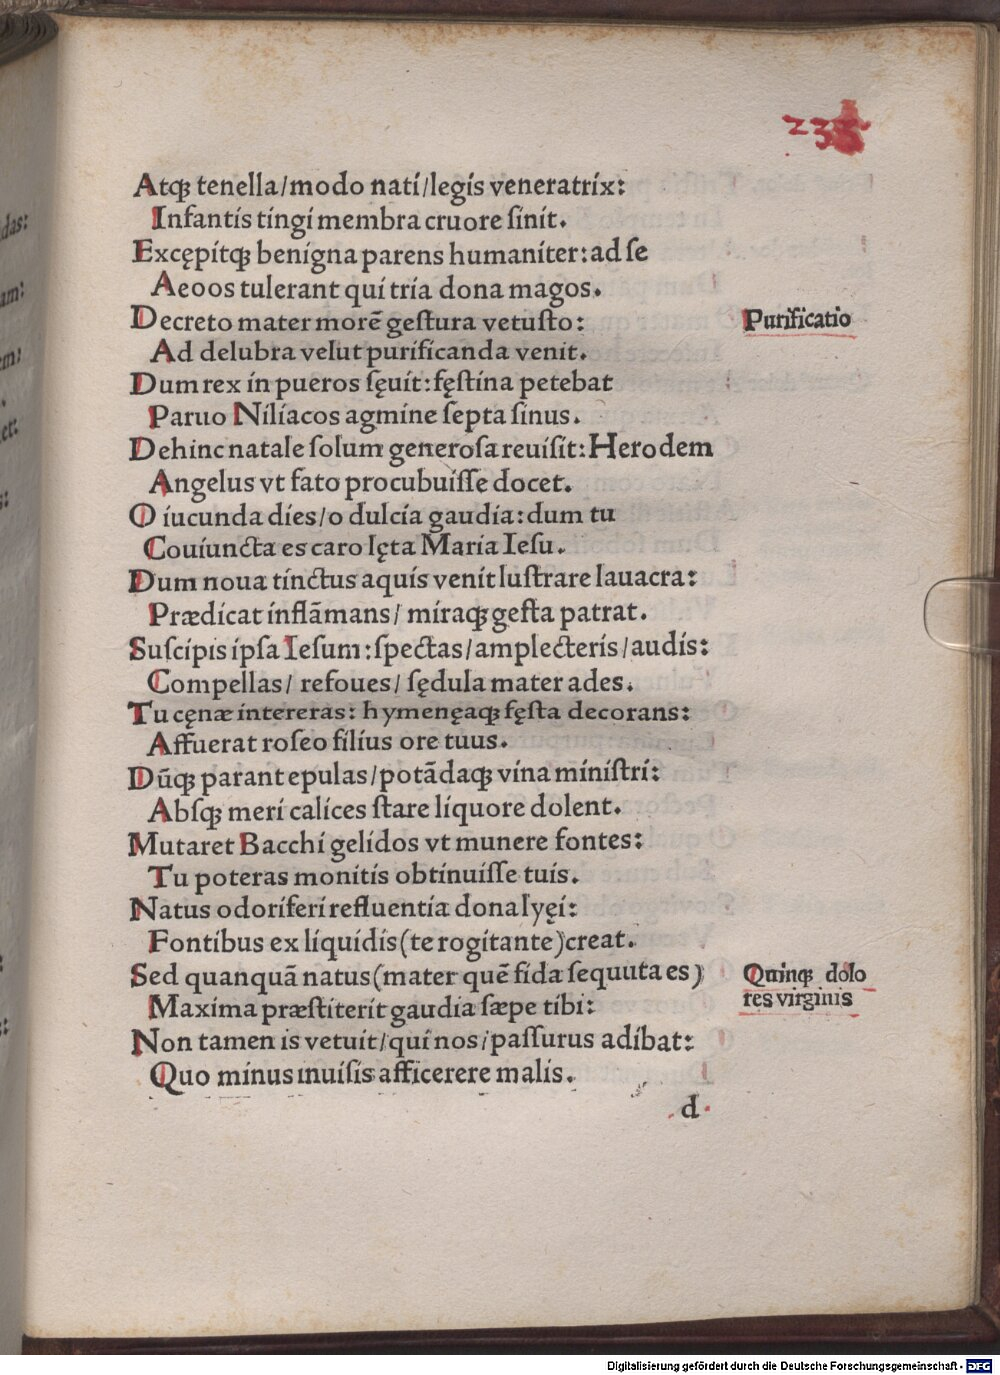 Atqꝫ tenella/modo nati/legis veneratrix:
Infantis tingi membra cruore ſinit.
Excępitqꝫ benigna parens humaniter: ad ſe
Aeoos tulerant qui tria dona magos.
Decreto mater morē geſtura vetuſto:
Purificatio
Ad delubra velut purificanda venit.
Dum rex in pueros ſęuit: fęſtina petebat
Paruo Niliacos agmine ſepta ſinus.
Dehinc natale ſolum generoſa reuiſit: Herodem
Angelus vt fato procubuiſſe docet.
O iucunda dies/o dulcia gaudia: dum tu
Couiuncta es caro lęta Maria Ieſu.
Dum noua tinctus aquis venit luſtrare lauacra:
Prædicat inflāmans/ miraqꝫ geſta patrat.
Suſcipis ipſa Ieſum: ſpectas/amplecteris/audis:
Compellas/ refoues/ ſędula mater ades.
Tu cęnæ intereras: hymenęaqꝫ fęſta decorans:
Affuerat roſeo filius ore tuus.
Dūqꝫ parant epulas/potādaqꝫ vina miniſtri:
Abſqꝫ meri calices ſtare liquore dolent.
Mutaret Bacchi gelidos vt munere fontes:
Tu poteras monitis obtinuiſſe tuis.
Natus odoriferi refluentia dona lyęi:
Fontibus ex liquidis(te rogitante)creat.
Sed quanquā natus(mater quē fida ſequuta es)
Quinqꝫ dolo
res virginis
Maxima præſtiterit gaudia ſæpe tibi:
Non tamen is vetuit/qui nos/paſſurus adibat:
Quo minus inuiſis afficerere malis.
d
Digitalisierung gefördert durch die Deutsche Forschungsgemeinschaft - DFG